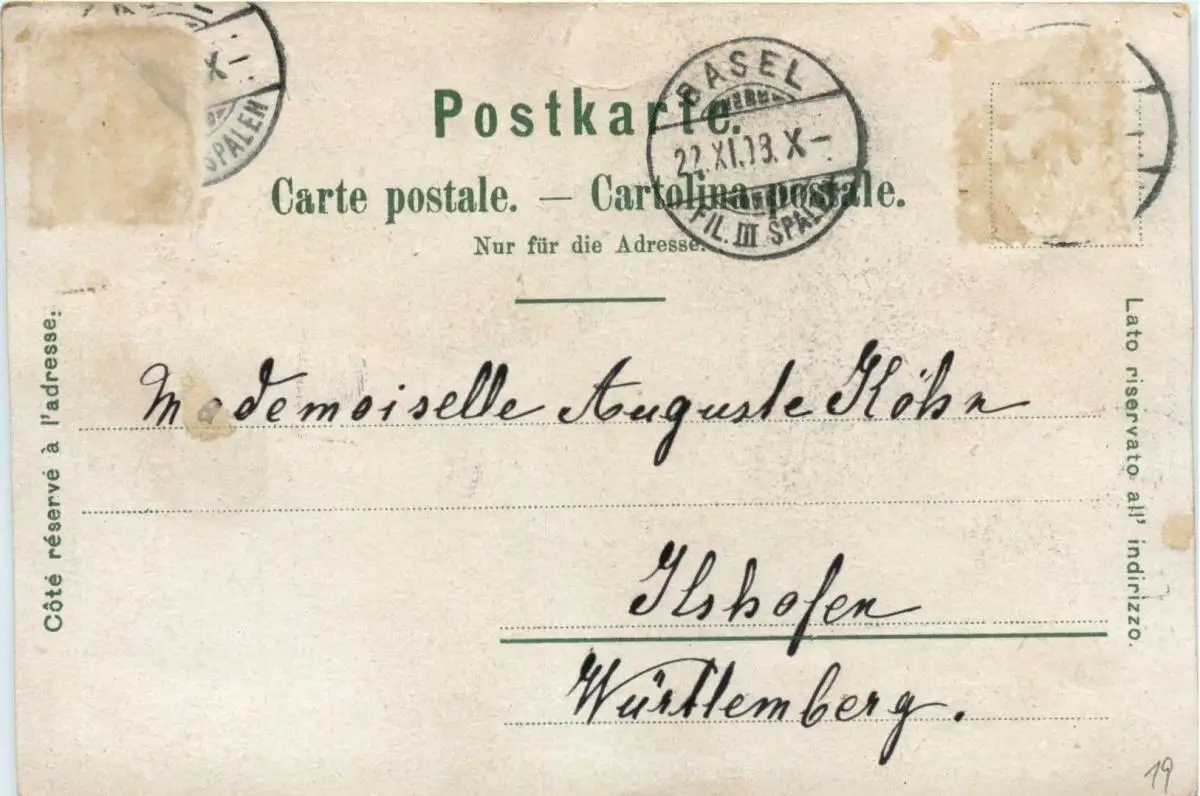 SPALEN
X-
BASEL
22.XI.98.X-
FIL. III SPALEN
Postkarte.
Carte postale. — Cartolina postale.
Nur für die Adresse.
Côté réservé à l'adresse.
Lato riservato all' indirizzo.
Mademoiselle Auguste Köhn
Ilshofen
Württemberg.
19